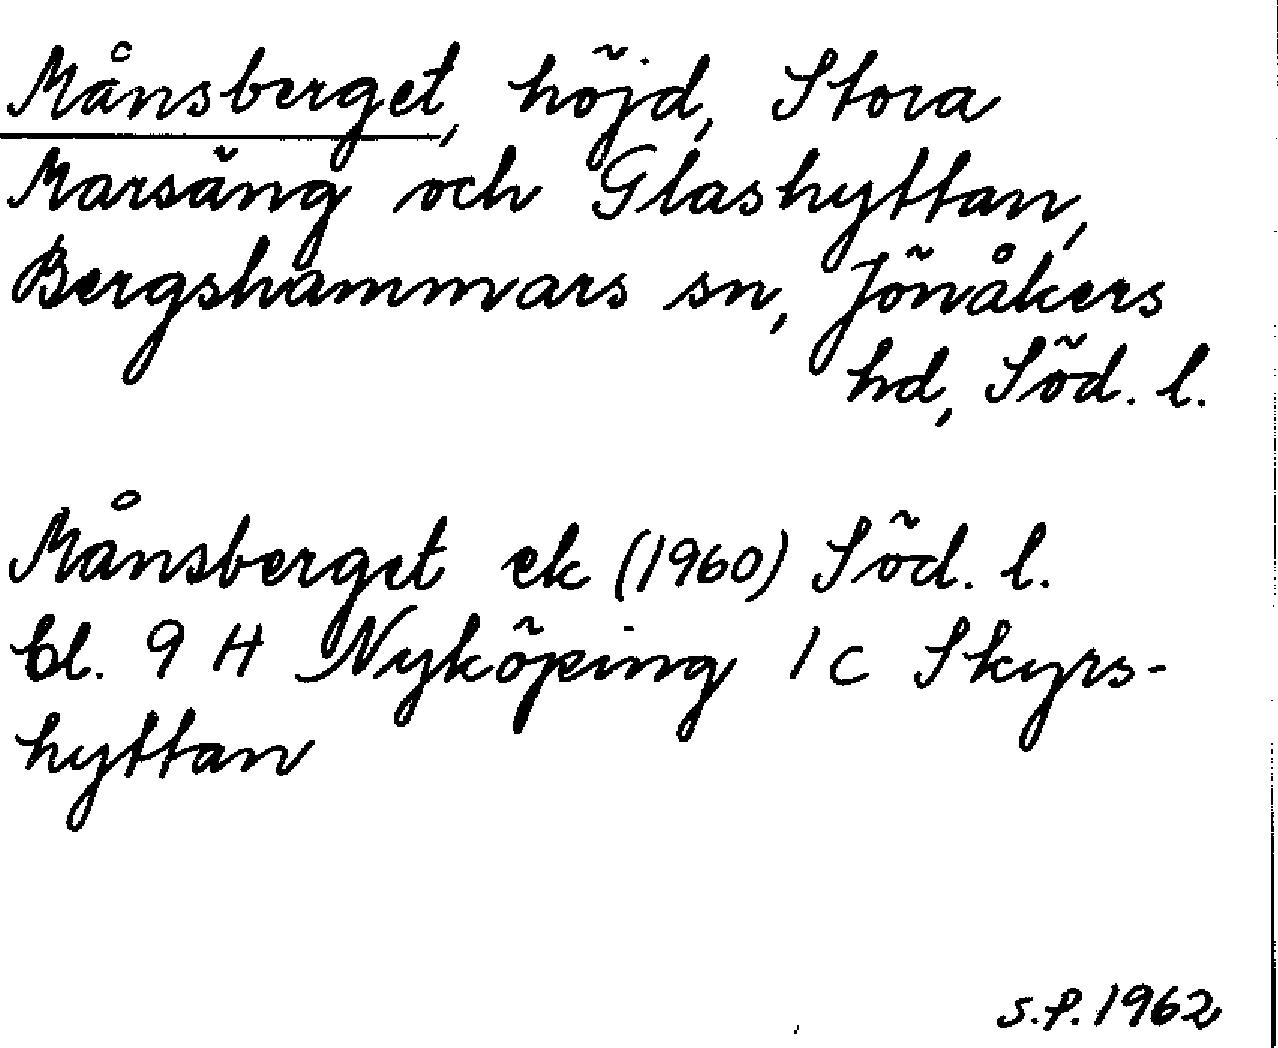 Månsberget, höjd, Stora
Marsäng och Glashyttan,
Bergshammars sn, Jönåkers
hd, Söd. l.
Månsberget ek (1960) Söd. l.
bl. 9 H Nyköping 1 c Skyrs-
hyttan
S.P. 1962